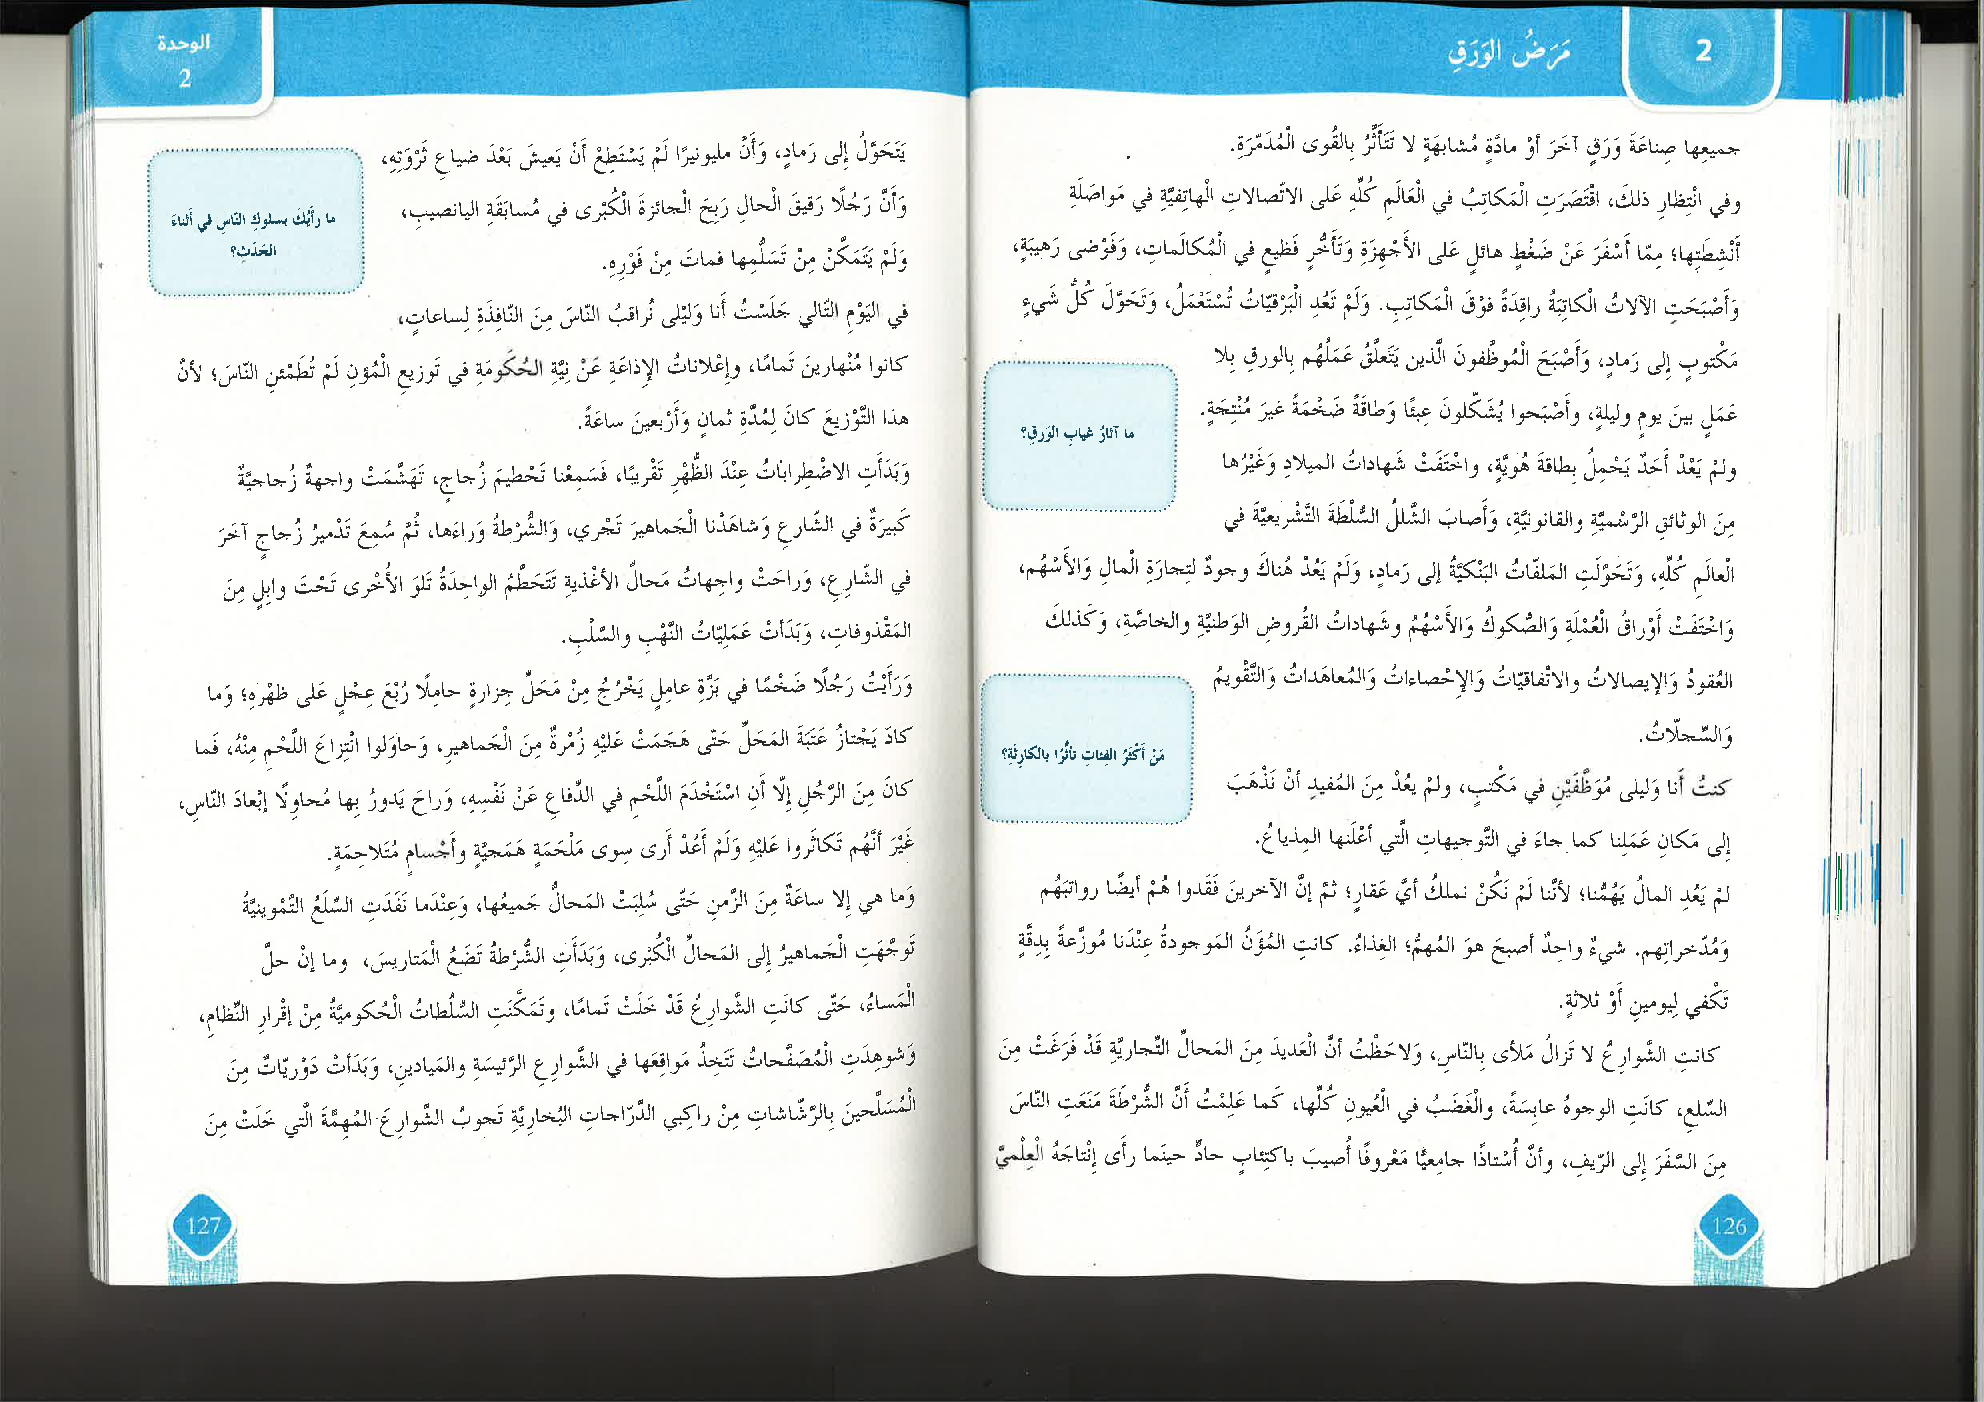 2
مَرَضُ الوَرَقِ
جميعِها صِناعَةَ وَرَقٍ آخَرَ أوْ مادَّةٍ مُشابهَةٍ لا تَتَأَثَّرُ بِالقُوى الْمُدَمّرَةِ.
وفي انْتِظارِ ذلكَ، اقْتَصَرَتِ الْمَكاتِبُ في الْعَالَمِ كُلِّهِ عَلى الاتّصالاتِ الْهاتِفيَّةِ في مَواصَلَةِ
أنْشِطَتِها؛ مِمّا أسْفَرَ عَنْ ضَغْطٍ هائلٍ عَلى الأَجْهِزَةِ وَتَأَخُّرٍ فَظيعٍ في الْمُكالَماتِ، وَفَوْضى رَهيبَةٍ،
وَأَصْبَحَتِ الآلاتُ الْكاتِبَةُ راقِدَةً فوْقَ الْمَكاتِبِ. وَلَمْ تَعُدِ الْبَرْقيّاتُ تُسْتَعْمَلُ، وَتَحَوَّلَ كُلُّ شَيءٍ
مَكْتوبٍ إلى رَمادٍ، وَأَصْبَحَ الْمُوظَّفونَ الَّذين يَتَعلَّقُ عَمَلُهُم بِالورقِ بِلا
عَمَلٍ بينَ يومٍ وليلةٍ، وأَصْبَحوا يُشَكّلونَ عِبئًا وَطاقَةً ضَخْمَةً غيرَ مُنْتِجَةٍ.
ما آثارُ غيابِ الوَرقِ؟
ولمْ يَعُدْ أَحَدٌ يَحْمِلُ بِطاقَةَ هُويَّةٍ، واخْتَفَتْ شَهاداتُ الميلادِ وَغَيْرُها
مِنَ الوثائقِ الرَّسْميَّةِ والقانونيَّةِ، وَأَصابَ الشَّللُ السُّلْطَةَ التَّشْريعيَّةَ في
الْعالَمِ كُلِّهِ، وَتَحَوَّلَتِ المَلفّاتُ البَنْكيَّةُ إلى رَمادٍ، وَلَمْ يَعُدْ هُناكَ وجودٌ لتِجارَةِ المالِ وَالأَسْهُمِ،
وَاخْتَفَتْ أَوْراقُ الْعُمْلَةِ وَالصُّكوكُ وَالأَسْهُمُ وشَهاداتُ القُروضِ الوَطنيَّةِ والخاصَّةِ، وَكَذلكَ
العُقودُ وَالإيصالاتُ والاتْفاقيّاتُ وَالإِحْصاءاتُ وَالمُعاهَداتُ وَالتَّقْويمُ
وَالسّجلّاتُ.
مَنْ أكْثَرُ الفِئاتِ تأثُّرًا بالكارِثَةِ؟
كنتُ أنا وَليلى مُوَظَّفَيْنِ في مَكْتبٍ، ولمْ يعُدْ مِنَ المُفيدِ أنْ نَذْهَبَ
إلى مَكانِ عَمَلِنا كما جاءَ في التَّوجيهاتِ الَّتي أعْلَنها المِذياعُ.
لمْ يَعُدِ المالُ يَهُمُّنا؛ لأنَّنا لَمْ نَكُنْ نملكُ أيَّ عَقارٍ؛ ثمَّ إنَّ الآخرينَ فَقَدوا هُمْ أيضًا رواتبَهُم
وَمُدّخراتِهم. شيءٌ واحِدٌ أصبحَ هوَ المُهمُّ؛ الغِذاءُ. كانتِ المُؤَنُ المَوجودةُ عِنْدَنا مُوزَّعةً بِدِقَّةٍ
تَكْفي لِيومينِ أَوْ ثلاثةٍ.
كانتِ الشَّوارِعُ لا تَزالُ مَلأى بِالنّاسِ، وَلاحَظْتُ أنَّ الْعَديدَ مِنَ المَحالِّ التِّجاريَّةِ قَدْ فَرَغَتْ مِنَ
السِّلعِ، كانَتِ الوجوهُ عابِسَةً، والْغَضَبُ في الْعُيونِ كُلِّها، كَما عَلِمْتُ أَنَّ الشُّرْطَةَ مَنَعَتِ النّاسَ
مِنَ السَّفَرَ إلى الرّيفِ، وأنَّ أُسْتاذًا جامِعيًّا مَعْروفًا أُصيبَ باكتِئابٍ حادٍّ حينَما رأى إنْتاجَهُ الْعِلْميَّ
126
الوحدة
2
يَتَحَوَّلُ إلى رَمادٍ، وَأَنَّ مليونيرًا لَمْ يَسْتَطِعْ أَنْ يَعيشَ بَعْدَ ضياعِ ثَرْوَتِهِ،
وَأنَّ رَجُلًا رَقيقَ الْحالِ رَبِحَ الْجائزَةَ الْكُبْرى في مُسابَقَةِ اليانصيبِ،
وَلَمْ يَتَمَكَّنْ مِنْ تَسَلُّمِها فماتَ مِنْ فَوْرِهِ.
ما رأيُكَ بسلوكِ النّاسِ في أثناءِ
الحَدَثِ؟
في اليَوْمِ التّالي جَلَسْتُ أنا وَلَيْلى نُراقبُ النّاسَ مِنَ النّافِذَةِ لِساعاتٍ،
كانوا مُنْهارينَ تَمامًا، وإعْلاناتُ الإذاعَةِ عَنْ نيَّةِ الحُكُومَةِ في تَوزيعِ الْمُؤَنِ لَمْ تُطَمْئنِ النّاسَ؛ لأنَّ
هذا التَّوْزيعَ كانَ لِمُدَّةِ ثمانٍ وَأَرْبعينَ ساعَةً.
وَبَدَأَتِ الاضْطِراباتُ عِنْدَ الظُّهْرِ تَقْريبًا، فَسَمِعْنا تَحْطيمَ زُجاجٍ، تَهَشَّمَتْ واجهةٌ زُجاجيَّةٌ
كَبيرَةٌ في الشّارعِ وَشاهَدْنا الْجَماهيرَ تَجْري، وَالشُّرْطةُ وَراءَها، ثُمَّ سُمِعَ تَدْميرُ زُجاجٍ آخَرَ
في الشّارِعِ، وَراحَتْ واجِهاتُ مَحالِّ الأغْذيةِ تَتَحَطَّمُ الواحِدَةُ تَلوَ الأُخْرى تَحْتَ وابِلٍ مِنَ
المَقْذوفاتِ، وَبَدَأتْ عَمَليّاتُ النَّهْبِ والسَّلْبِ.
وَرَأَيْتُ رَجُلًا ضَخْمًا في بَزَّةِ عامِلٍ يَخْرُجُ مِنْ مَحَلِّ جِزارةٍ حامِلًا رُبْعَ عِجْلٍ عَلى ظهْرِهِ؛ وَما
كادَ يَجْتازُ عَتَبَةَ المَحَلِّ حَتّى هَجَمَتْ عَليْهِ زُمْرةٌ مِنَ الْجَماهيرِ، وَحاوَلوا انْتِزاعَ اللَّحْمِ مِنْهُ، فَما
كانَ مِنَ الرَّجُلِ إلّا أَنِ اسْتَخْدَمَ اللَّحْمِ في الدِّفاعِ عَنْ نَفْسِهِ، وَراحَ يَدورُ بِها مُحاوِلًا إبْعادَ النّاسِ،
غَيْرَ أنَّهُم تَكاثَروا عَليْهِ وَلَمْ أَعُدْ أَرى سِوى مَلْحَمَةٍ هَمَجيَّةٍ وأَجْسامٍ مُتَلاحِمَةٍ.
وَما هي إلا ساعَةٌ مِنَ الزَّمنِ حَتّى سُلِبَتْ المَحالُّ جَميعُها، وَعِنْدَما نَفَدَتِ السِّلَعُ التَّمْوينيَّةُ
تَوجَّهَتِ الْجَماهيرُ إلى المَحالِّ الْكُبْرى، وَبَدَأَتِ الشُّرْطةُ تَضَعُ الْمَتاريسَ، وما إنْ حلَّ
الْمَساءُ، حَتّى كانَتِ الشَّوارِعُ قَدْ خَلَتْ تَمامًا، وتَمَكَّنَتِ السُّلُطاتُ الْحُكوميَّةُ مِنْ إقْرارِ النِّظامِ،
وَشوهِدَتِ الْمُصَفَّحاتُ تَتَّخِذُ مَواقِعَها في الشَّوارِعِ الرَّئيسَةِ والمَيادينِ، وَبَدَأتْ دَوْريّاتٌ مِنَ
الْمُسَلَّحينَ بِالرَّشّاشاتِ مِنْ راكِبي الدَّرّاجاتِ البُخاريَّةِ تَجوبُ الشَّوارِعَ المُهِمَّةَ الَّتي خَلَتْ مِنَ
127